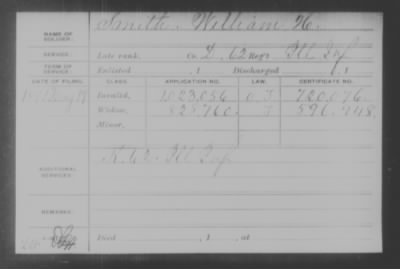 NAME OF SOLDIER: Smith, William H.
SERVICE: Late rank, Co. D, 62 Regt Ill Inf
TERM OF SERVICE: Enlisted , 1 Discharged , 1
DATE OF FILING. CLASS. APPLICATION NO. LAW. CERTIFICATE NO.
Invalid, 1,023,056 720,076
Widow, 825,760 596,448
Minor,
ADDITIONAL SERVICES: K. 62 Ill Inf
REMARKS:
Died , 1 , at